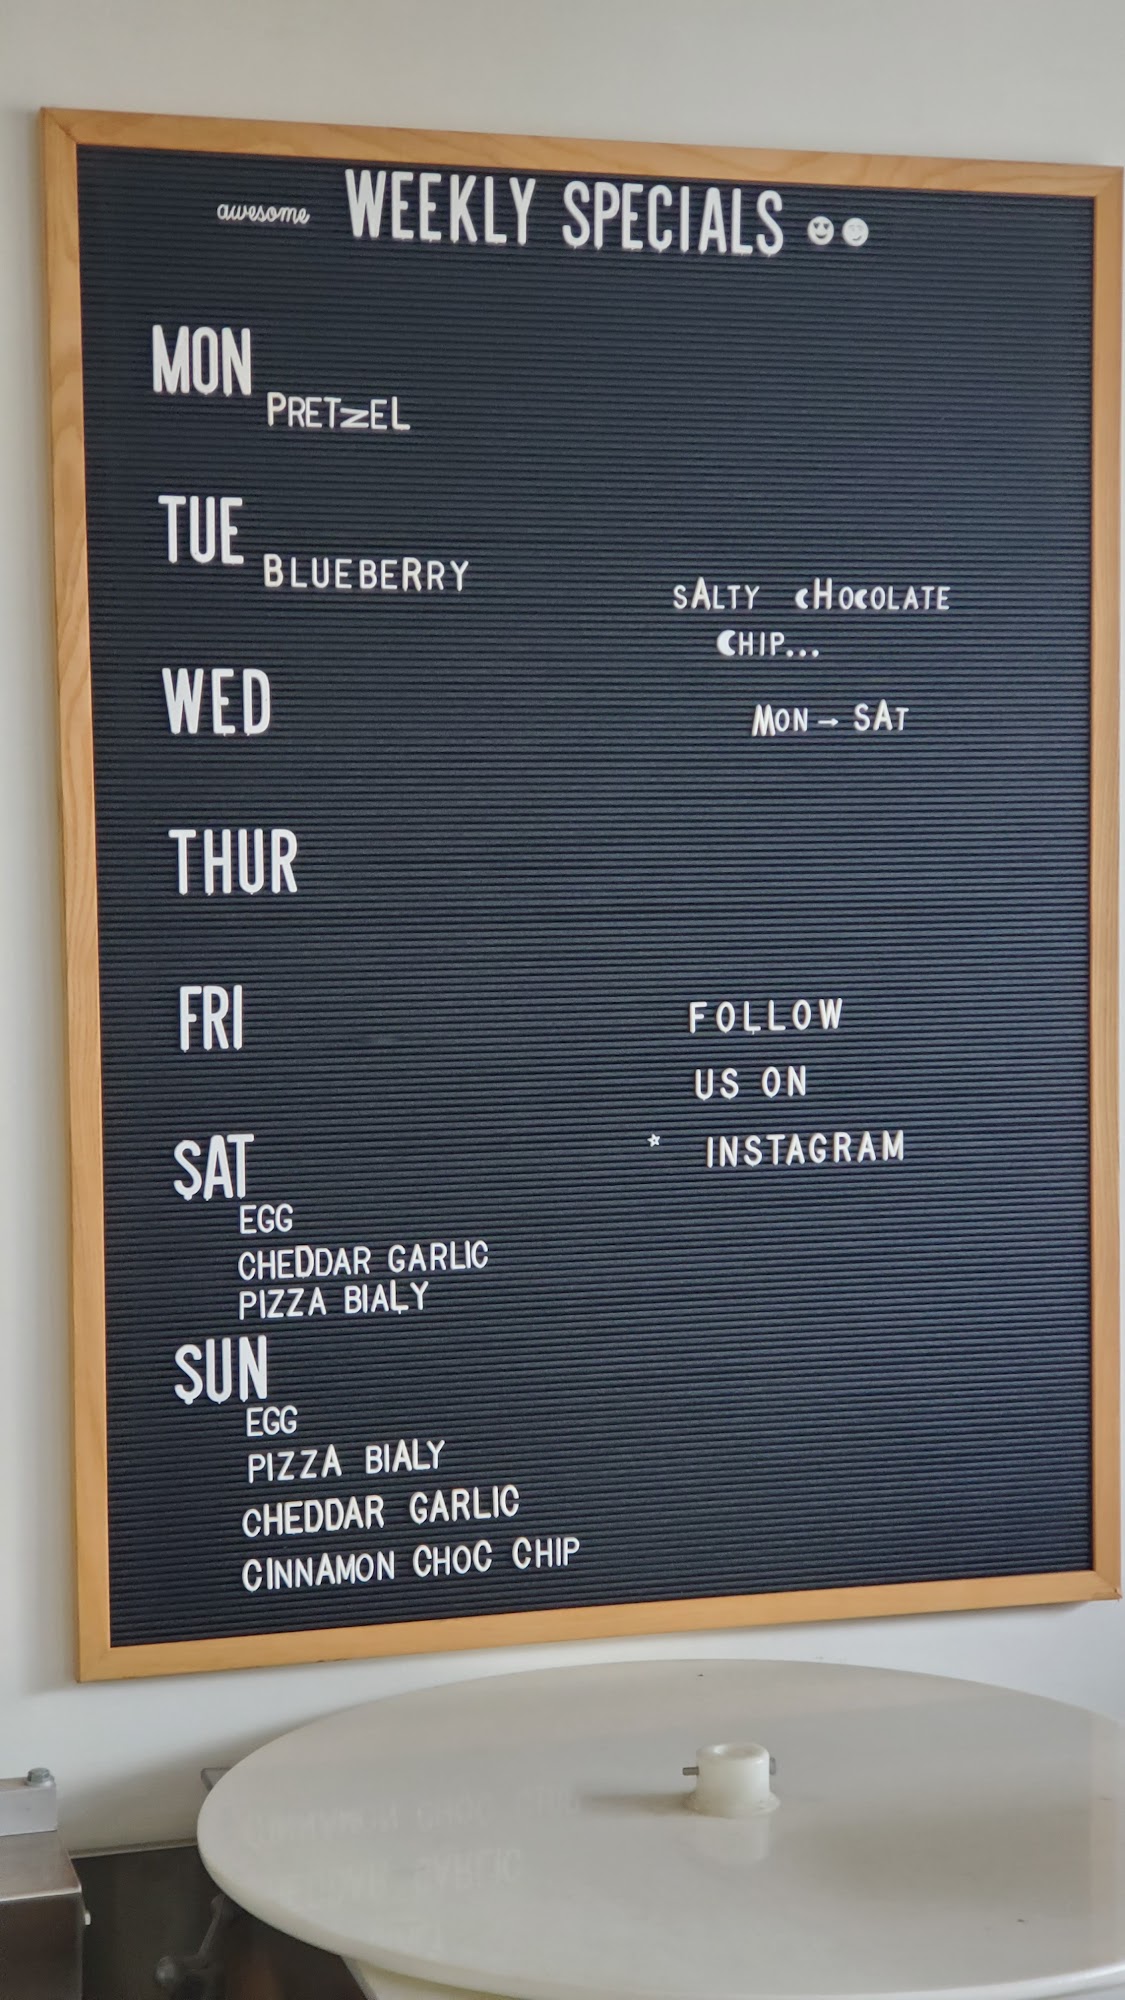 awesome WEEKLY SPECIALS
MON
PRETZEL
TUE
BLUEBERRY
WED
THUR
FRI
SAT
EGG
CHEDDAR GARLIC
PIZZA BIALY
SUN
EGG
PIZZA BIALY
CHEDDAR GARLIC
CINNAMON CHOC CHIP
SALTY CHOCOLATE
CHIP...
MON → SAT
FOLLOW
US ON
INSTAGRAM